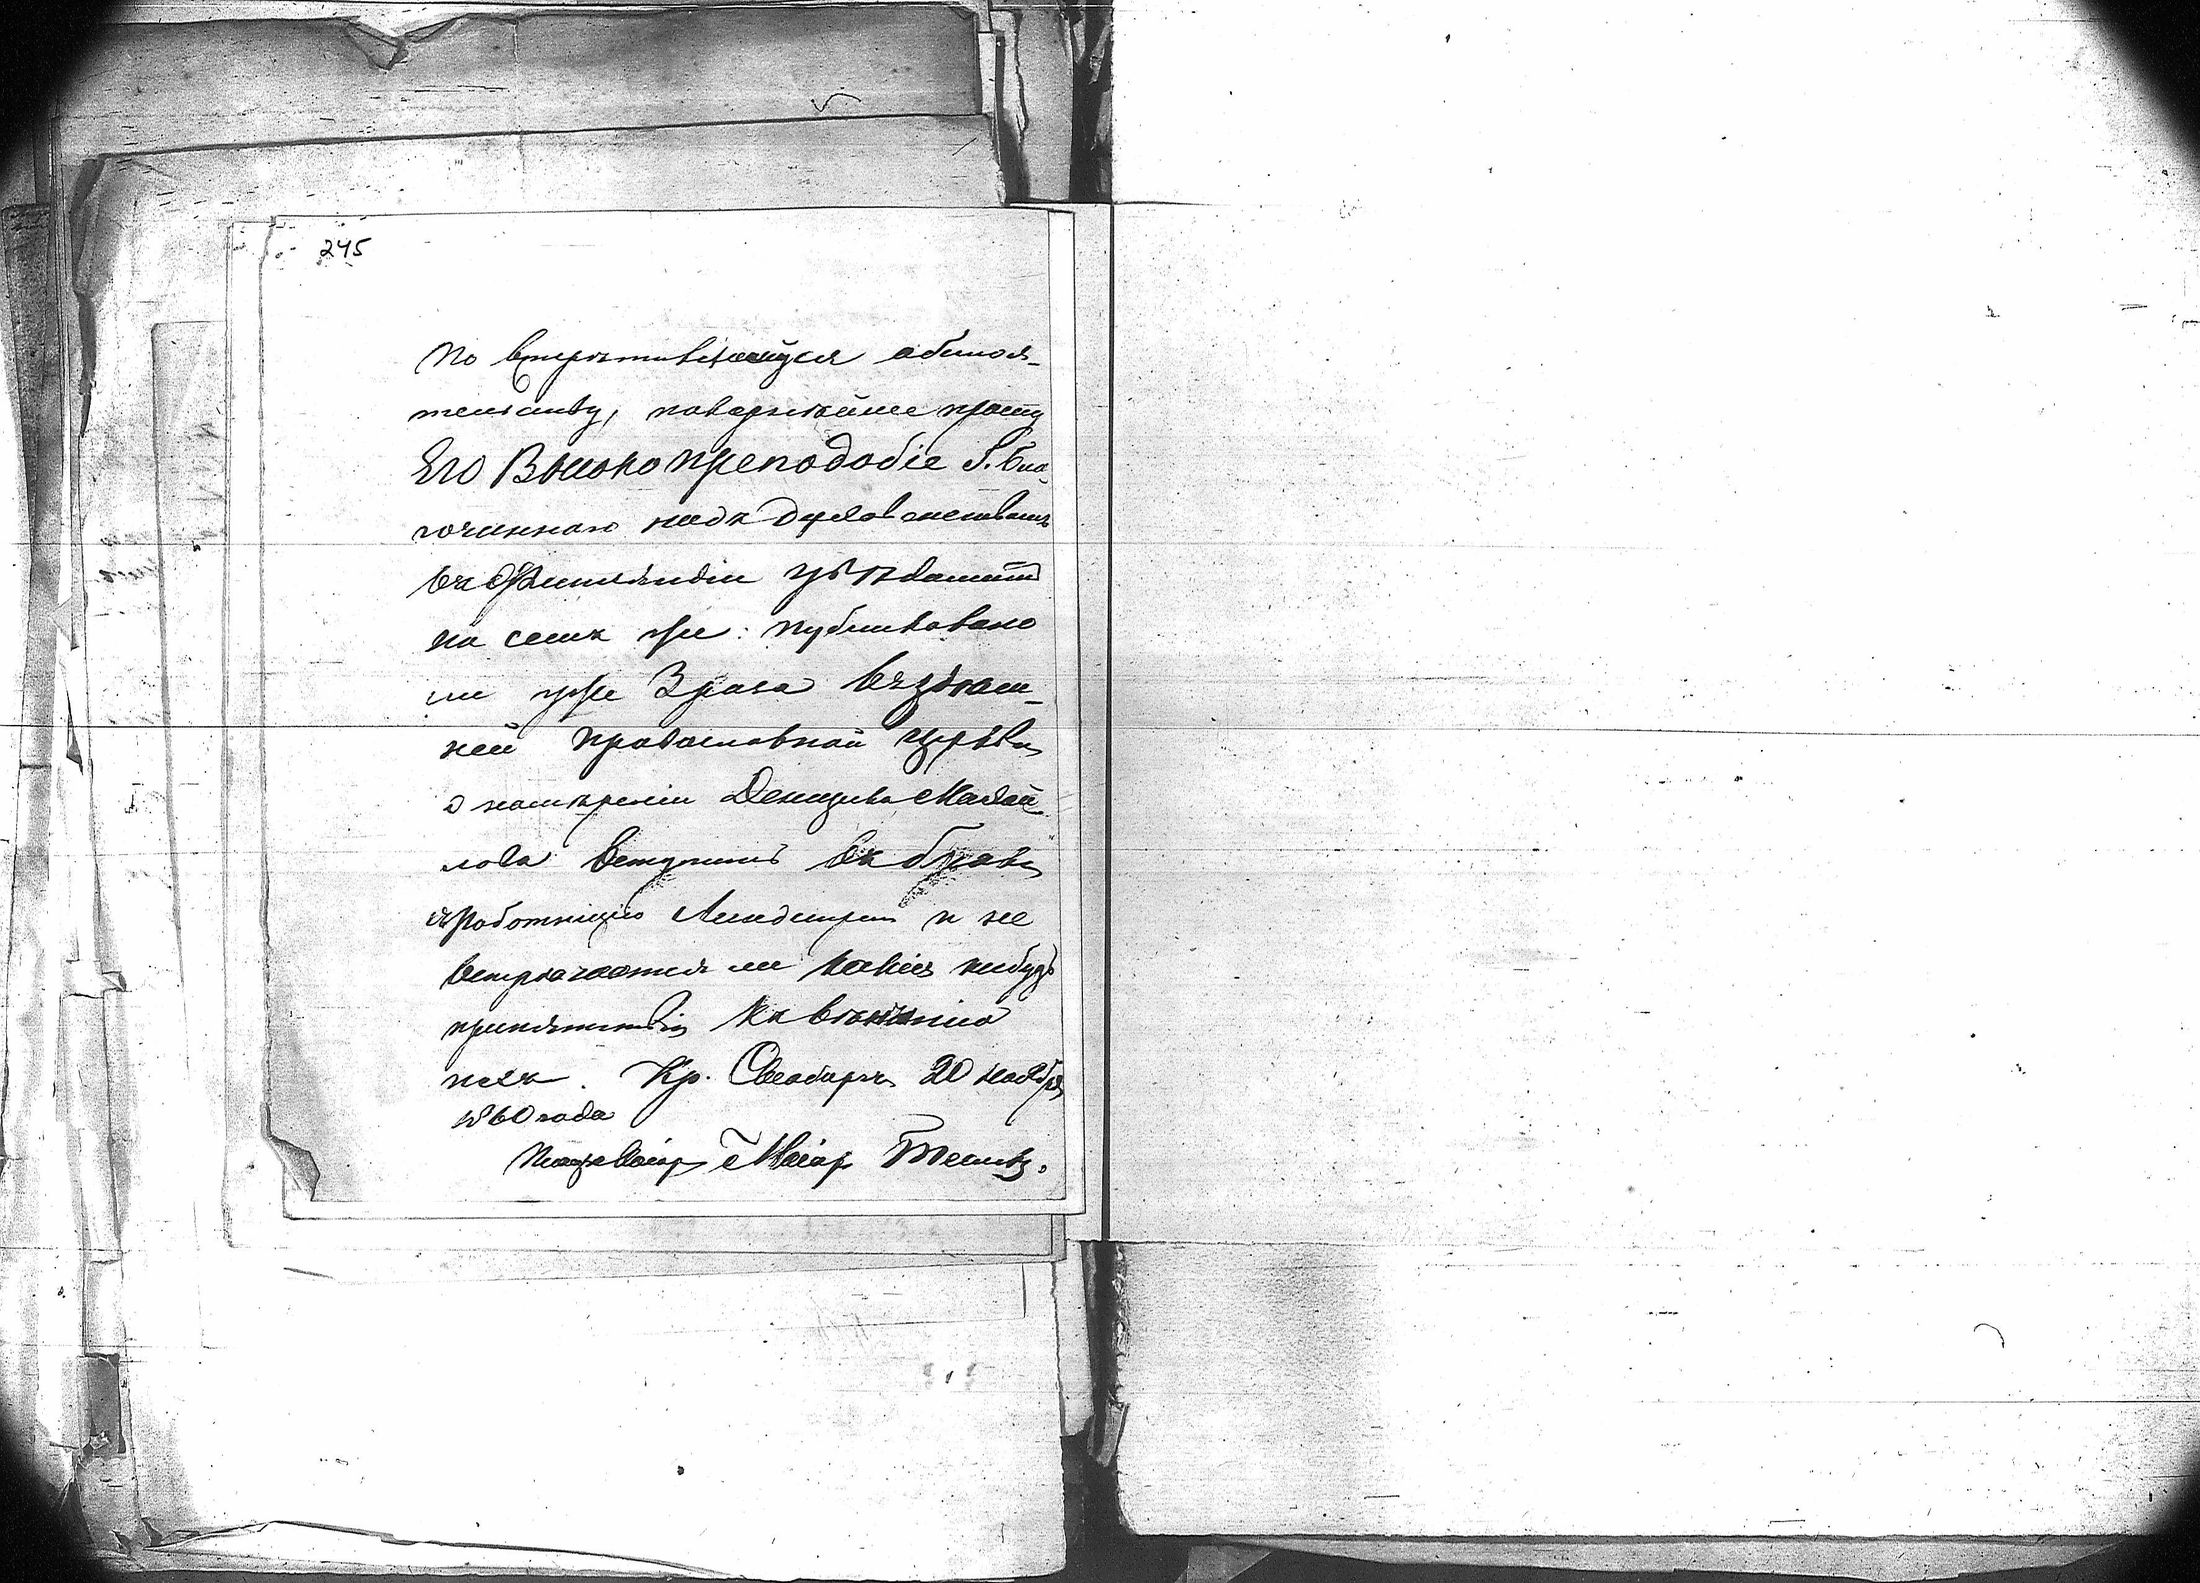 245
По встрѣтившемуся обстоя-
тельству, покорнѣйше прошу
Его Высокопреподобіе Г. Бла-
гочиннаго надъ Духовенствомъ
въ Финляндіи увѣдомить
на семъ же: публиковано
ли уже 3 раза въ здѣш-
ней православной церкви
о намѣреніи Денщика Михай
лова вступить въ бракъ
съ Работницею Линдстрем и не
встрѣчается ли какихъ нибудь
препятствій къ вѣнчанію
ихъ. Кр. Свеаборгъ 20 ноября
1860 года
Плацъ Маіор